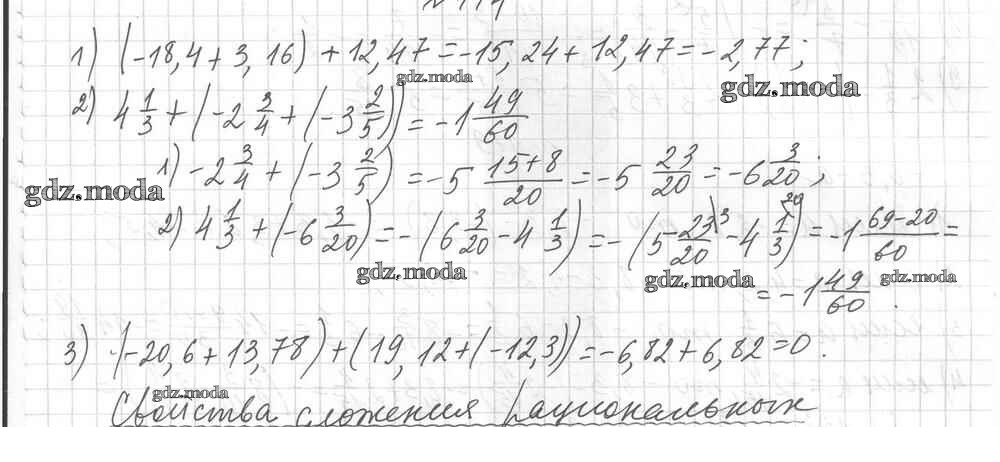 1) (-18,4 + 3,16) + 12,47 = -15,24 + 12,47 = -2,77;
gdz.moda
gdz.moda
2) 4 1/3 + (-2 3/4 + (-3 2/5)) = -1 49/60
1) -2 3/4 + (-3 2/5) = -5 (15+8)/20 = -5 23/20 = -6 3/20;
gdz.moda
2) 4 1/3 + (-6 3/20) = -(6 3/20 - 4 1/3) = -(5 23\3/20 - 4 1\20/3) = -1 (69-20)/60 =
gdz.moda
gdz.moda
gdz.moda
= -1 49/60.
3) (-20,6 + 13,78) + (19,12 + (-12,3)) = -6,82 + 6,82 = 0.
gdz.moda
Свойства сложения рациональных